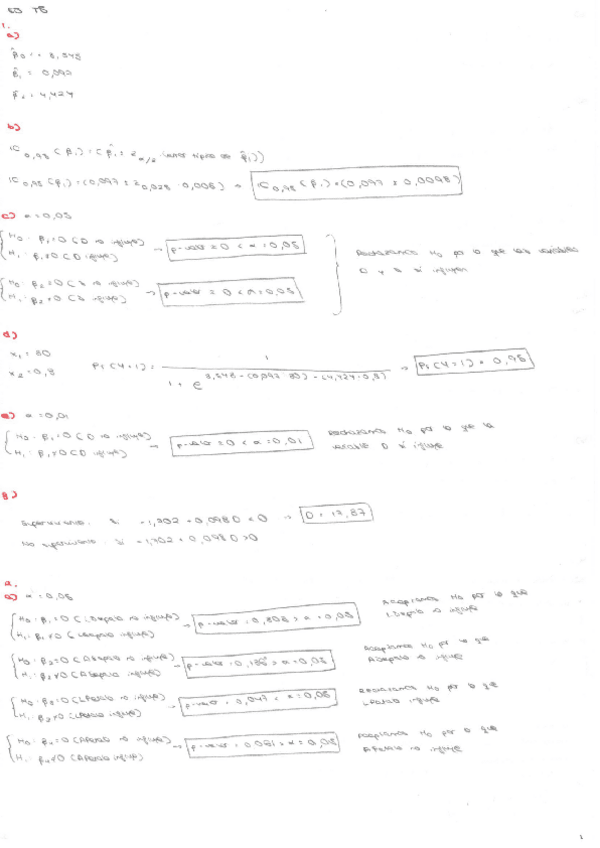 E3 T5
1.
a)
β̂₀ = 3,548
β̂₁ = 0,097
β̂₂ = 4,424
b)
IC 0,95 (β₁) = (β̂₁ ± z α/2 (error típico de β̂₁))
IC 0,95 (β₁) = (0,097 ± z 0,025 · 0,005) → IC 0,95 (β₁) = (0,097 ± 0,0098)
c) α = 0,05
H₀: β₁ = 0 (D no influye)
H₁: β₁ ≠ 0 (D influye) → p-valor = 0 < α = 0,05
H₀: β₂ = 0 (S no influye)
H₁: β₂ ≠ 0 (S influye) → p-valor = 0 < α = 0,05
Rechazamos H₀ por lo que las variables
D y S sí influyen
d)
x₁ = 80
x₂ = 0,8
Pr (Y=1) = 1 / 1 + e 3,548 - (0,097 · 80) - (4,424 · 0,8) → Pr (Y=1) = 0,96
e) α = 0,01
H₀: β₁ = 0 (D no influye)
H₁: β₁ ≠ 0 (D influye) → p-valor = 0 < α = 0,01
Rechazamos H₀ por lo que la
variable D sí influye
g)
Superviviente: si -1,702 + 0,098 D < 0 →
No superviviente: si -1,702 + 0,098 D > 0
2.
a) α = 0,05
H₀: β₁ = 0 (LSepalo no influye)
H₁: β₁ ≠ 0 (LSepalo influye) → p-valor = α = 0,05
Aceptamos H₀ por lo que
LSepalo no influye
H₀: β₂ = 0 (ASepalo no influye)
H₁: β₂ ≠ 0 (ASepalo influye) → p-valor = α = 0,05
Aceptamos H₀ por lo que
ASepalo no influye
H₀: β₃ = 0 (LPetalo no influye)
H₁: β₃ ≠ 0 (LPetalo influye) → p-valor = 0,047 < α = 0,05
Rechazamos H₀ por lo que
LPetalo influye
H₀: β₄ = 0 (APetalo no influye)
H₁: β₄ ≠ 0 (APetalo influye) → p-valor = 0,051 > α = 0,05
Aceptamos H₀ por lo que
APetalo no influye
1